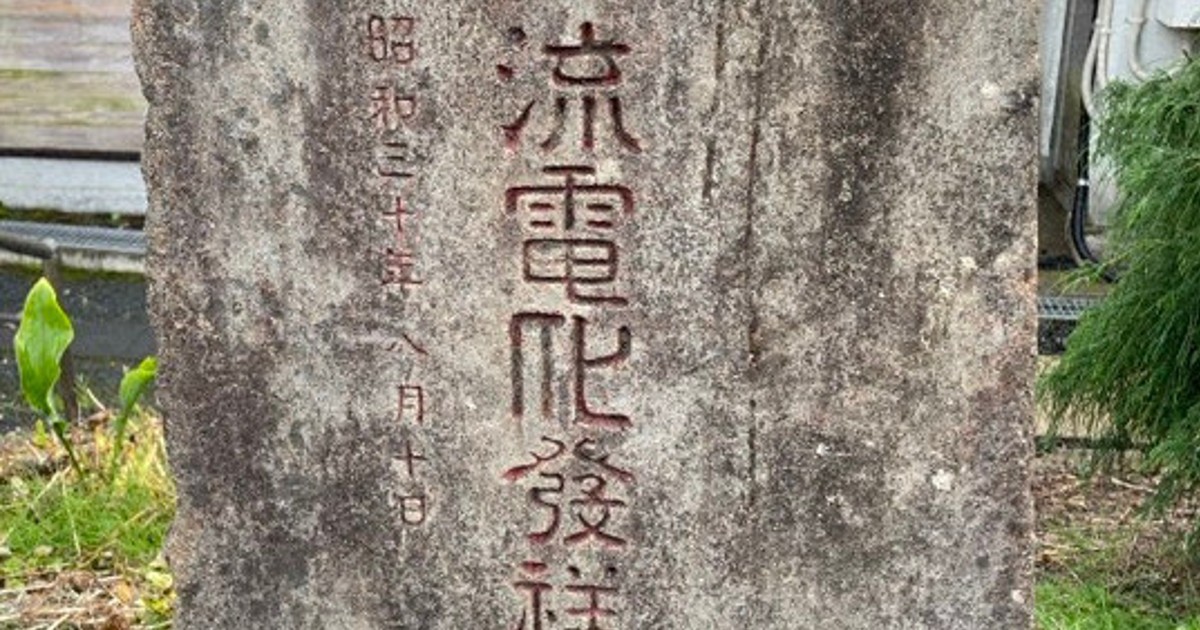 流電化發祥
昭和三十年八月十日